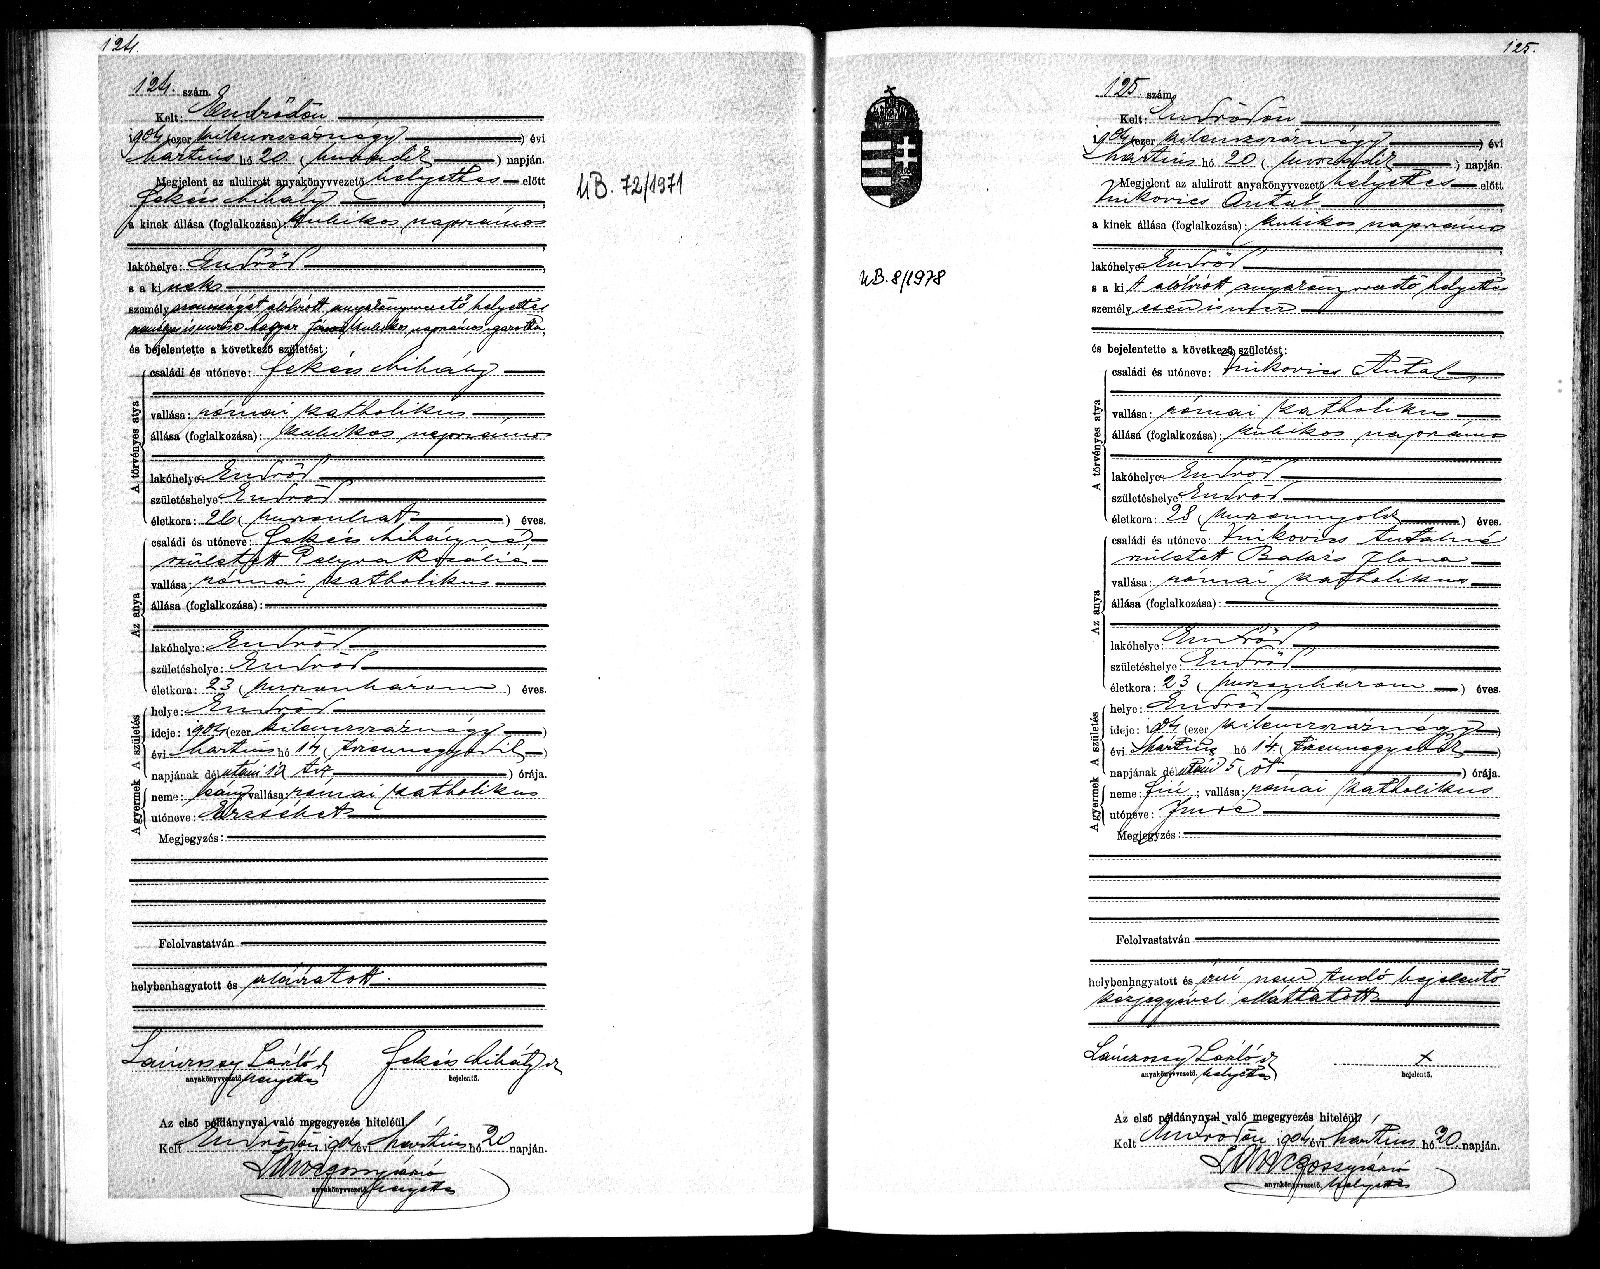 124.
124. szám.
Kelt: Endrődön
1904 (ezer kilenczszáznégy) évi
Mártius hó 20 (húszadik) napján.
Megjelent az alulirott anyakönyvvezető helyettes előtt
Fekécs Mihály
a kinek állása (foglalkozása): kubikos napszámos
lakóhelye: Endrőd
s a kinek
személyazonosságát alólirott anyakönyvvezető helyettes
kubikos, napszámos
és bejelentette a következő születést:
A törvényes atya
családi és utóneve: Fekécs Mihály
vallása: római katholikus
állása (foglalkozása): kubikos napszámos
lakóhelye: Endrőd
születéshelye: Endrőd
életkora: 26 (huszonhat) éves.
Az anya
családi és utóneve: Fekécs Mihályné
született Pelyva Rozália
vallása: római katholikus
állása (foglalkozása):
lakóhelye: Endrőd
születéshelye: Endrőd
életkora: 23 (huszonhárom) éves.
A születés
helye: Endrőd
ideje: 1904 (ezer kilenczszáznégy)
évi Mártius hó 14 (tizennegyedik)
napjának délutáni 10 tiz) órája.
A gyermek
neme: leány vallása: római katholikus
utóneve: Erzsébet
Megjegyzés:
Felolvastatván
helybenhagyatott és aláiratott.
Lánczossy László Fekécs Mihály
anyakönyvvezető. helyettes bejelentő.
Az első példánynyal való megegyezés hiteléül.
Kelt Endrődön 1904 évi Mártius hó 20 napján.
Lánczossy László
anyakönyvvezető. helyettes
UB. 72/1971
125.
UB. 8/1978
125 szám.
Kelt: Endrődön
1904 (ezer kilenczszáznégy) évi
Mártius hó 20 (huszadik) napján.
Megjelent az alulirott anyakönyvvezető helyettes előtt
Jinkovics Antal
a kinek állása (foglalkozása): kubikos napszámos
lakóhelye: Endrőd
s a kit alólirott anyakönyvvezető helyettes
személyesen ismer
és bejelentette a következő születést:
A törvényes atya
családi és utóneve: Jinkovics Antal
vallása: római katholikus
állása (foglalkozása): kubikos napszámos
lakóhelye: Endrőd
születéshelye: Endrőd
életkora: 28 (huszonnyolcz) éves.
Az anya
családi és utóneve: Jinkovics Antalné
született Balázs Ilona
vallása: római katholikus
állása (foglalkozása):
lakóhelye: Endrőd
születéshelye: Endrőd
életkora: 23 (huszonhárom) éves.
A születés
helye: Endrőd
ideje: 1904 (ezer kilenczszáznégy)
évi Mártius hó 14 (tizennegyedik)
napjának délutáni 5 (öt) órája.
A gyermek
neme: fiú; vallása: római katholikus
utóneve: Imre
Megjegyzés:
Felolvastatván
helybenhagyatott és írni nem tudó bejelentő
kézjegyével elláttatott
Lánczossy László +
anyakönyvvezető. helyettes bejelentő.
Az első példánynyal való megegyezés hiteléül?
Kelt Endrődön 1904 évi Mártius hó 20 napján.
Lánczossy László
anyakönyvvezető. helyettes